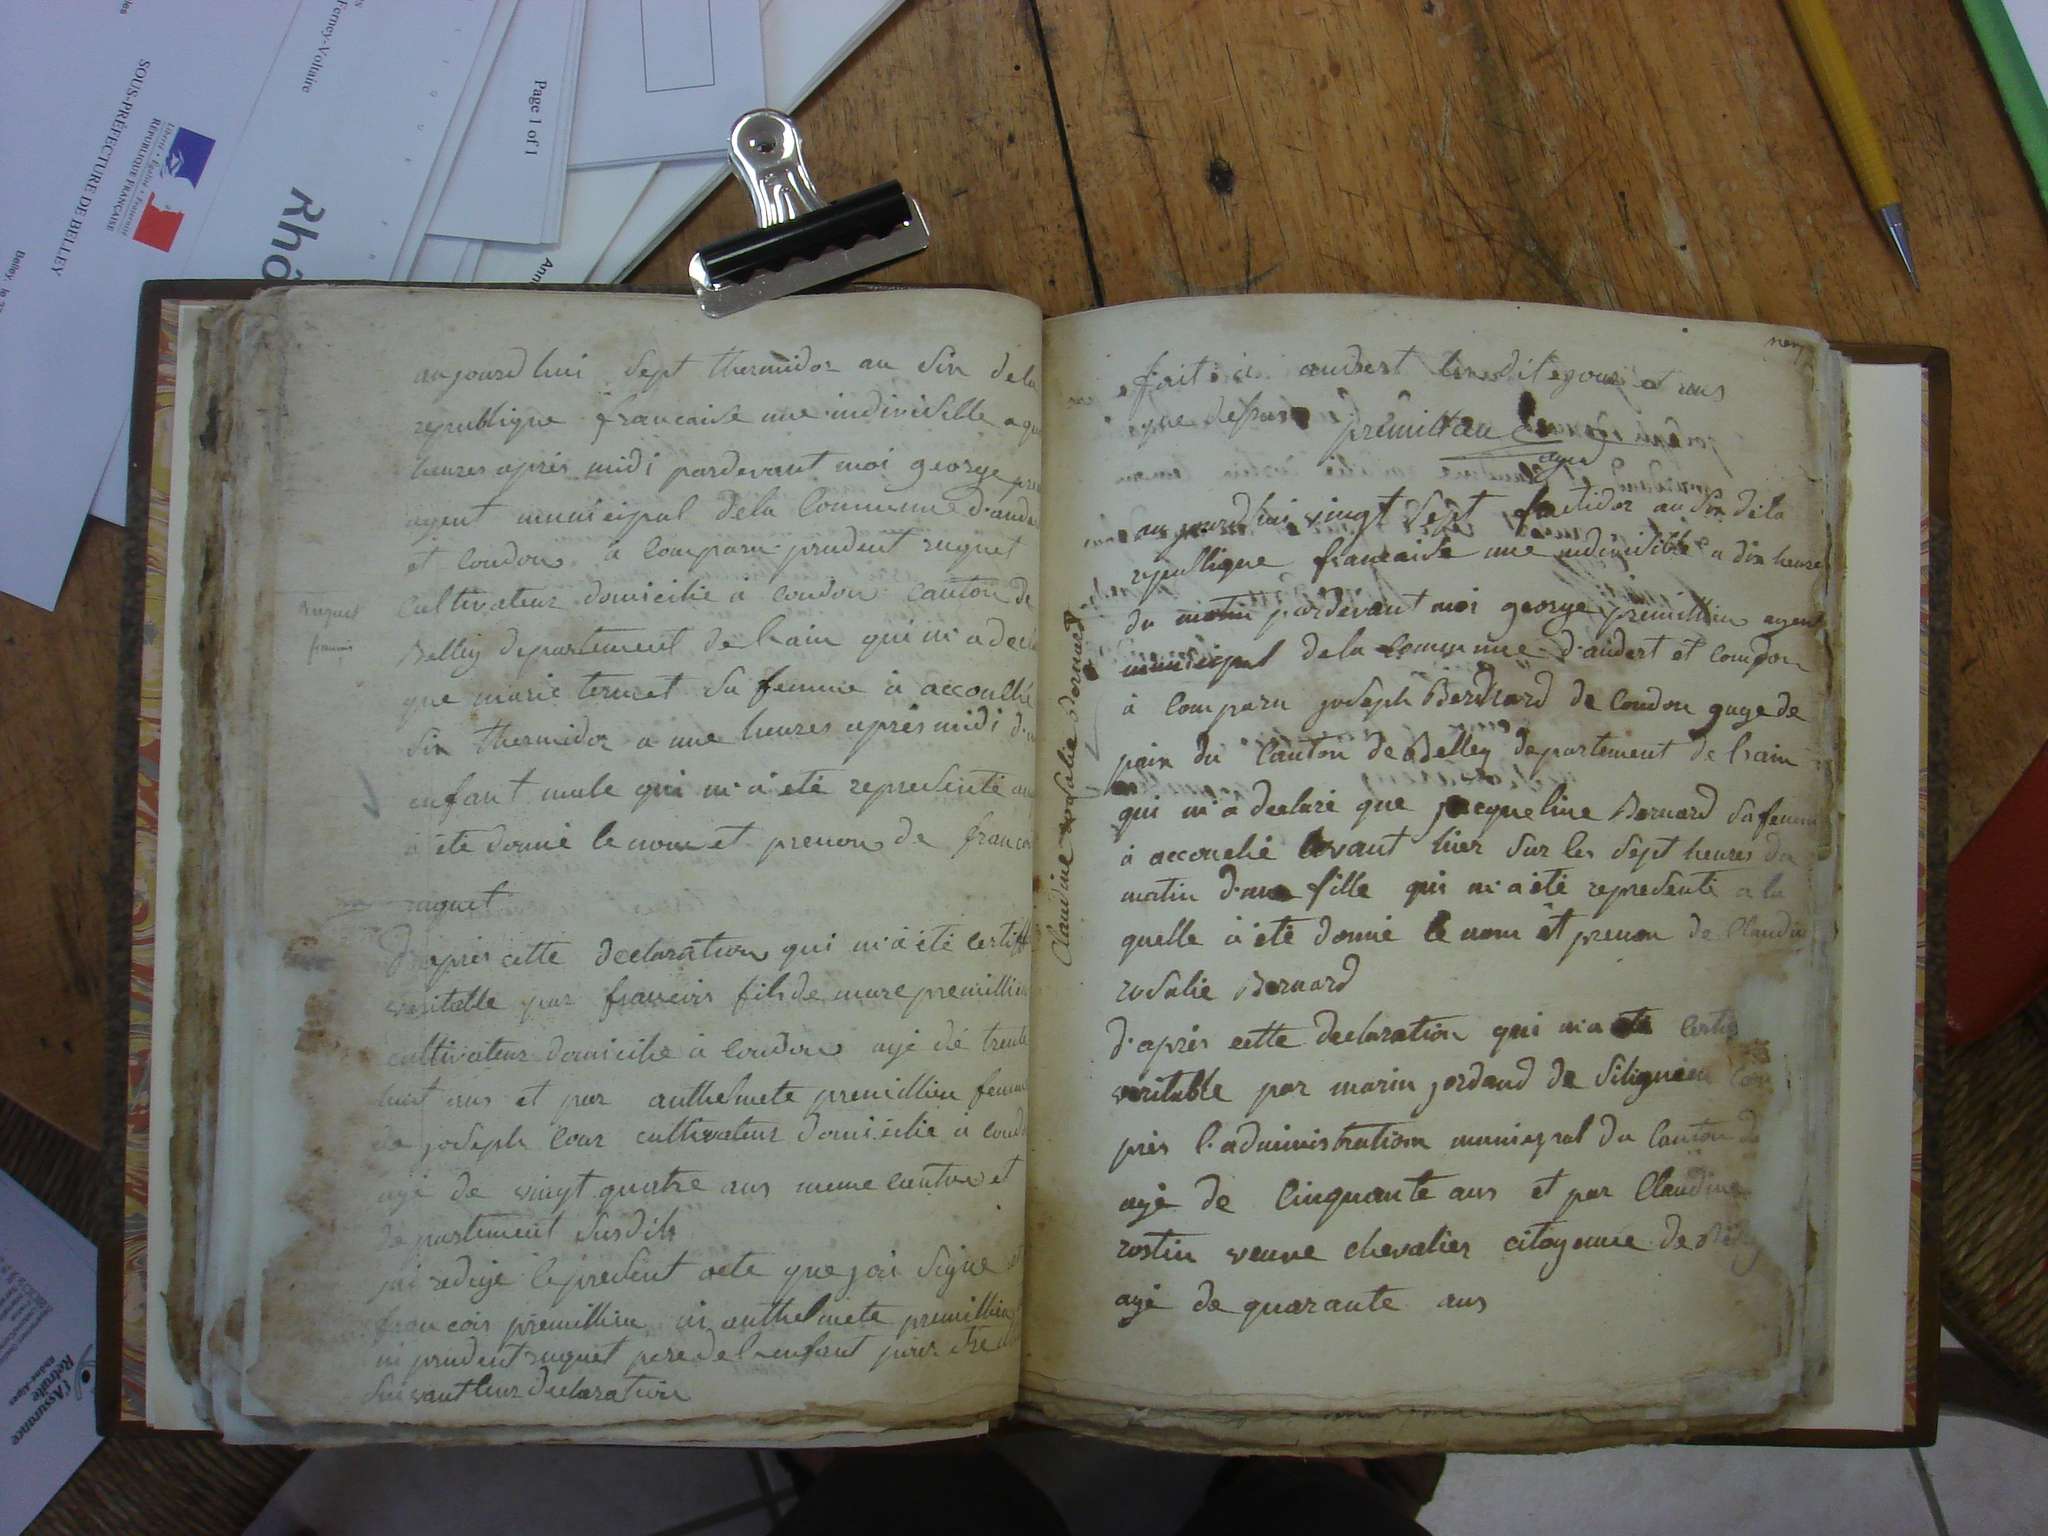 Ferney-Voltaire
SOUS-PRÉFECTURE DE BELLEY
Liberté • Égalité • Fraternité
RÉPUBLIQUE FRANÇAISE
Rhô
Page 1 of 1
Ann
l'Assurance
Retraite
Rhône-Alpes
Ruguet
francois
aujourdhui sept thermidor an six dela
republique francaise une indivisible a qua
heures apres midi pardevant moi george pre
agent municipal dela Commune d'ande
et Coudon à Comparu prudent ruguet
Cultivateur domicilié à Coudon Canton de
Belley departement de lain qui m'a decla
que marie ternet sa femme à accouché
six thermidor a une heures apres midi d'u
enfant male qui m'a eté representé au
à eté donné le nom et prenom de francoi
ruguet
D'apres cette declaration qui m'à eté certiffi
veritable par francois fils de marc premillieu
cultivateur domicilié à Coudon agé de trente
huit ans et par anthelmete premillieu femme
de joseph Cour cultivateur domicilié à Coudo
agé de vingt quatre ans meme canton et
departement susdits
jai redigé le present acte que jai signé
francois premillieu ni anthelmete premillieu
ni prudent ruguet pere del enfant pour etre
suivant leur declaration
fait à andert lesdit jour et ans
que dessus premillieu
agent
Claudine rosalie Bernard
aujourdhui vingt sept fructidor an six dela
republique francaise une indivisible a dix heures
du matin pardevant moi george premillieu agent
municipal dela Commune d'andert et Coudon
à Comparu joseph Bernard de Coudon gage de
paix du Canton de Belley departement de lain
qui m'a declaré que jacqueline Bernard sa femme
à accouché avant hier sur les sept heures du
matin d'une fille qui m'a été representé a la
quelle à eté donné le nom et prenom de Claudine
rosalie Bernard
d'après cette declaration qui m'a eté certi
veritable par marin jordand de Silignieu
près l'administration municipal du Canton de
agé de Cinquante ans et par Claudine
rostin veuve chevalier citoyenne de
agé de quarante ans